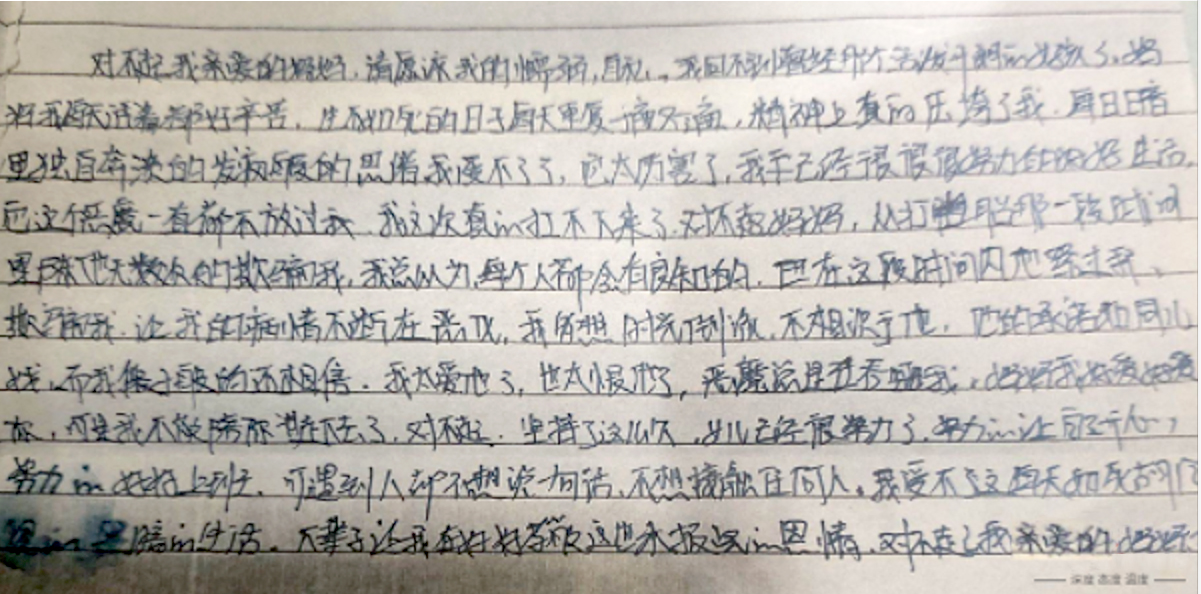 对不起我亲爱的妈妈，请原谅我的懦弱，自私，我回不到曾经那个活泼开朗的女孩了，妈
妈我每天活着都好辛苦，生不如死的日子每天重复一遍又一遍，精神上真的压垮了我，每日
里独自奔溃的发泄 的思绪我受不了了，它太厉害了，我已经很很很努力在好好生活，
可这个恶魔一直都不放过我，我这次真的扛不下来了，对不起妈妈，从打 那一段时间
里 他无数次的欺骗我，我总以为每个人都会有良知的，但在这段时间内他 过我，
欺骗我，让我的病情不断在恶化，我 不 于他，他的承诺如同儿
戏，而我傻子般的还相信，我太爱他了，也太恨他了，恶魔总是 我，妈妈我好爱好爱
你，可是我不能陪你 下去了，对不起，坚持了这么久，女儿已经很努力了，努力的让自己开心，
努力的好好上班，可遇到人都不想说一句话，不想接触任何人，我受不了这每天如
的黑暗的生活，下辈子让我在好好 报 的恩情，对不起了我亲爱的妈妈
深度 高度 温度